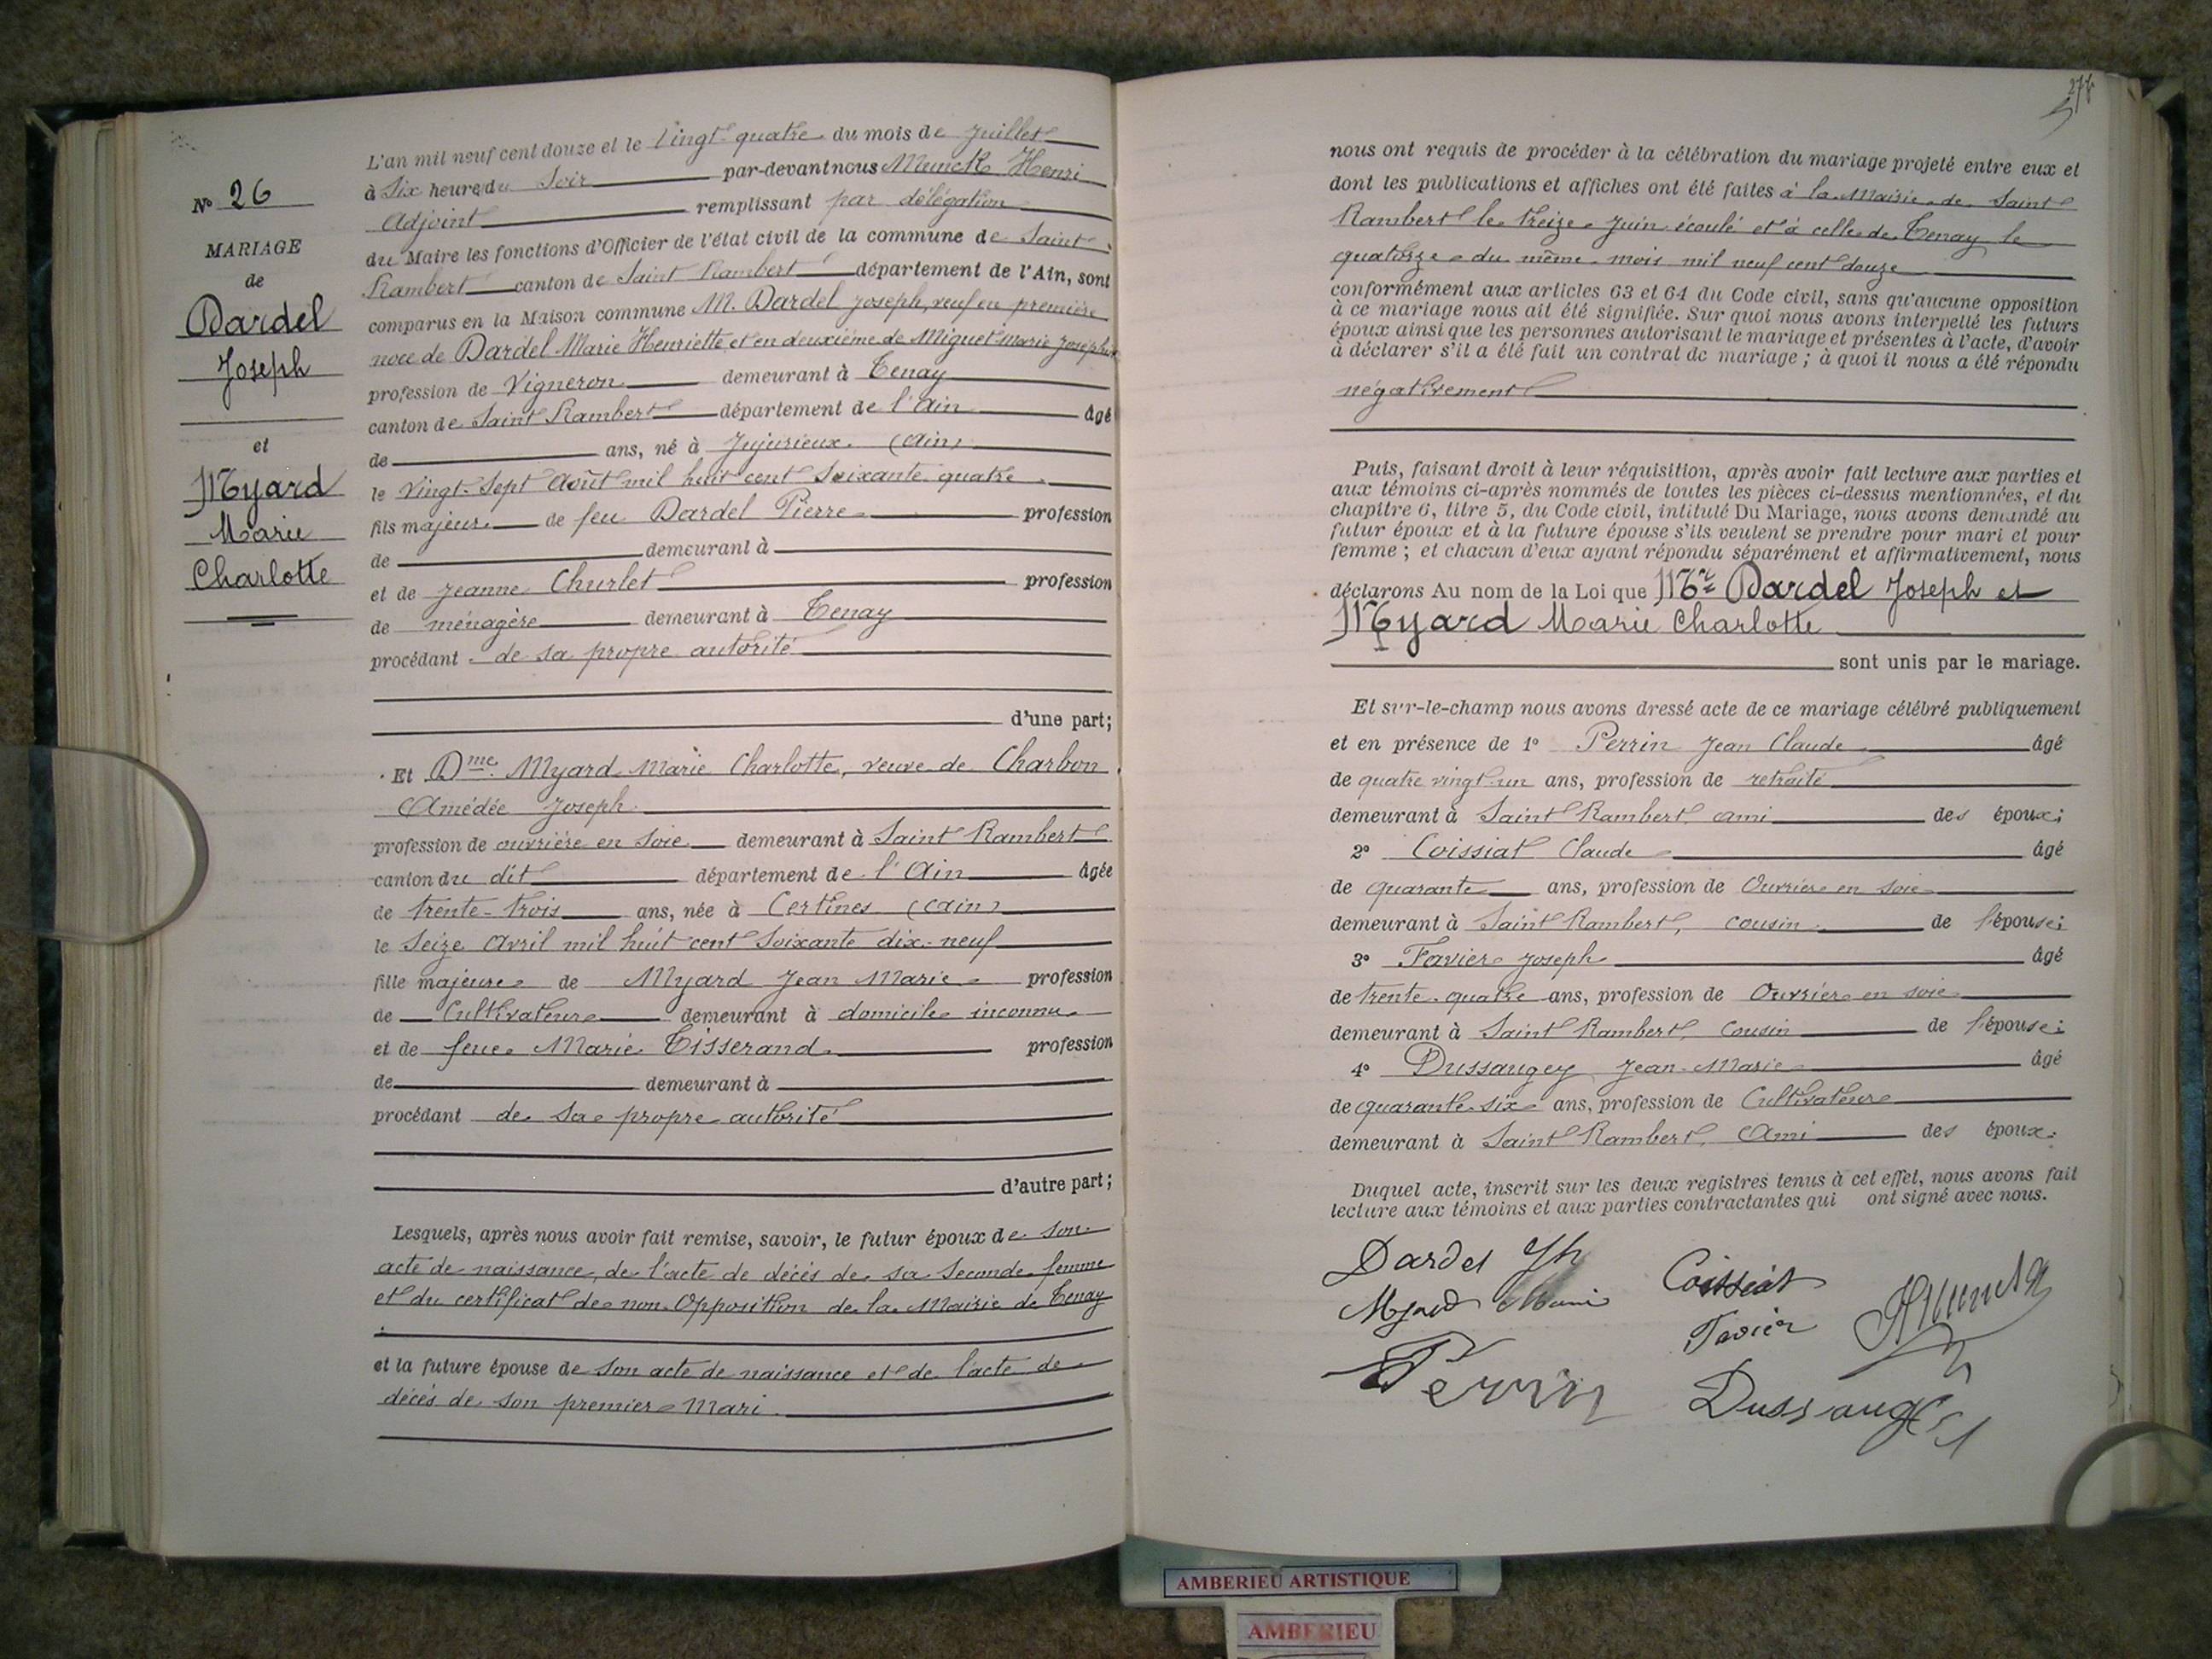 N° 26
MARIAGE
de
Dardel
Joseph
et
Myard
Marie
Charlotte
L'an mil neuf cent douze et le Vingt-quatre du mois de Juillet
à Six heures du Soir par-devant nous Munck Henri
Adjoint remplissant par délégation
du Maire les fonctions d'Officier de l'état civil de la commune de Saint
Rambert canton de Saint Rambert département de l'Ain, sont
comparus en la Maison commune M. Dardel Joseph, veuf en première
noce de Dardel Marie Henriette et en deuxième de Miguet Marie Josephte
profession de Vigneron demeurant à Tenay
canton de Saint Rambert département de l'Ain âgé
de ans, né à Jujurieux (Ain)
le Vingt-Sept Août mil huit cent Soixante quatre
fils majeur de feu Dardel Pierre profession
de demeurant à
et de Jeanne Churlet profession
de ménagère demeurant à Tenay
procédant de sa propre autorité
d'une part;
Et Dme Myard Marie Charlotte, veuve de Charbon
Amédée Joseph
profession de ouvrière en Soie demeurant à Saint Rambert
canton du dit département de l'Ain âgée
de trente-trois ans, née à Certines (Ain)
le Seize Avril mil huit cent Soixante dix-neuf
fille majeure de Myard Jean Marie profession
de Cultivateur demeurant à domicile inconnu
et de feue Marie Tisserand profession
de demeurant à
procédant de sa propre autorité
d'autre part;
Lesquels, après nous avoir fait remise, savoir, le futur époux de son
acte de naissance, de l'acte de décès de sa Seconde femme
et du certificat de non-Opposition de la Mairie de Tenay
et la future épouse de son acte de naissance et de l'acte de
décès de son premier Mari
nous ont requis de procéder à la célébration du mariage projeté entre eux et
dont les publications et affiches ont été faites à la Mairie de Saint
Rambert le treize Juin écoulé et à celle de Tenay le
quatorze du même mois mil neuf cent douze
conformément aux articles 63 et 64 du Code civil, sans qu'aucune opposition
à ce mariage nous ait été signifiée. Sur quoi nous avons interpellé les futurs
époux ainsi que les personnes autorisant le mariage et présentes à l'acte, d'avoir
à déclarer s'il a été fait un contrat de mariage ; à quoi il nous a été répondu
négativement
Puis, faisant droit à leur réquisition, après avoir fait lecture aux parties et
aux témoins ci-après nommés de toutes les pièces ci-dessus mentionnées, et du
chapitre 6, titre 5, du Code civil, intitulé Du Mariage, nous avons demandé au
futur époux et à la future épouse s'ils veulent se prendre pour mari et pour
femme ; et chacun d'eux ayant répondu séparément et affirmativement, nous
déclarons Au nom de la Loi que Mr Dardel Joseph et
Myard Marie Charlotte
sont unis par le mariage.
Et sur-le-champ nous avons dressé acte de ce mariage célébré publiquement
et en présence de 1° Perrin Jean Claude âgé
de quatre vingt-un ans, profession de retraité
demeurant à Saint Rambert ami des époux;
2° Coissiat Claude âgé
de quarante ans, profession de Ouvrier en Soie
demeurant à Saint Rambert, cousin de l'épouse;
3° Favier Joseph âgé
de trente-quatre ans, profession de Ouvrier en soie
demeurant à Saint Rambert, Cousin de l'épouse;
4° Dussaugey Jean-Marie âgé
de quarante-six ans, profession de Cultivateur
demeurant à Saint Rambert, Ami des époux.
Duquel acte, inscrit sur les deux registres tenus à cet effet, nous avons fait
lecture aux témoins et aux parties contractantes qui ont signé avec nous.
Dardel Jh Coissiat
Myard Marie Favier HMunck
Perrin Dussaugey
AMBERIEU ARTISTIQUE
AMBERIEU